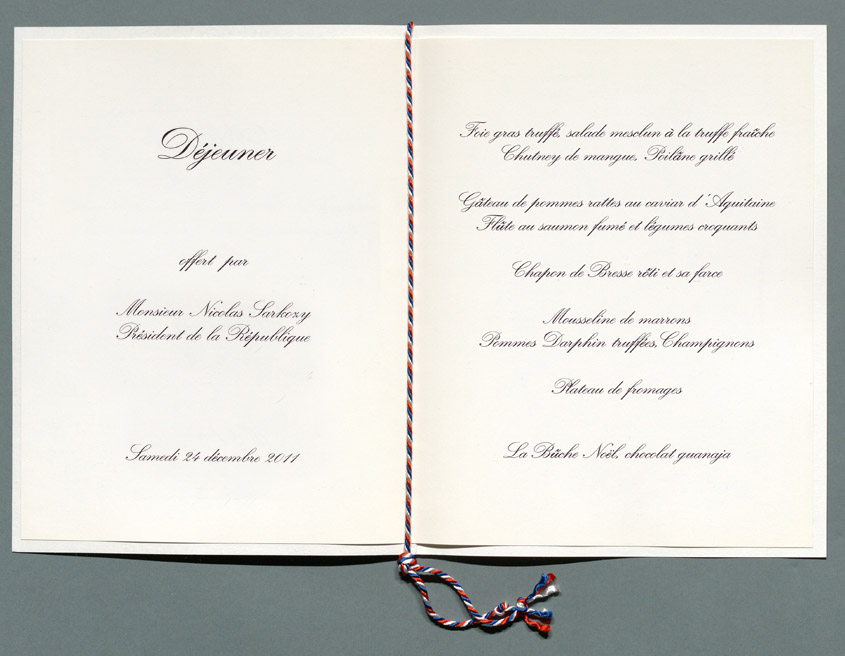 Déjeuner
offert par
Monsieur Nicolas Sarkozy
Président de la République
Samedi 24 décembre 2011
Foie gras truffé, salade mesclun à la truffe fraîche
Chutney de mangue, Poilâne grillé
Gâteau de pommes rattes au caviar d'Aquitaine
Flûte au saumon fumé et légumes croquants
Chapon de Bresse rôti et sa farce
Mousseline de marrons
Pommes Darphin truffées, Champignons
Plateau de fromages
La Bûche Noël, chocolat guanaja